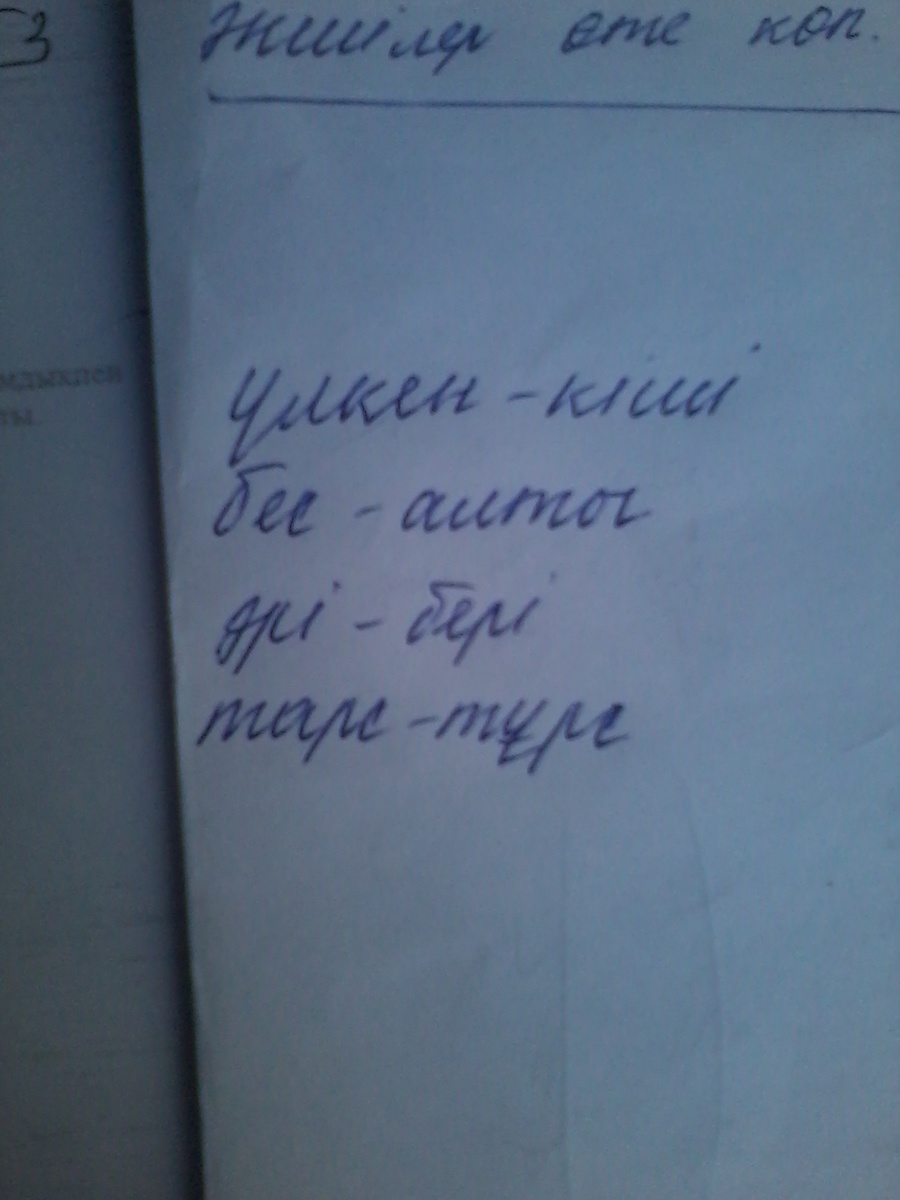 3
Әншілер өте көп.
мдықпен
ты.
үлкен - кіші
бес - алты
әрі - бері
тарс - тұрс